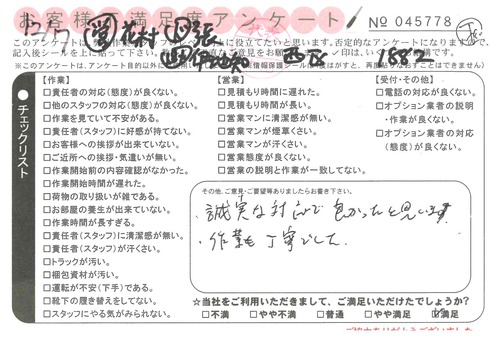 お客様満足度アンケート
№ 045778
12/17
西区
1882
このアンケートは、
記入後シールを上に貼って下さい。
※このアンケートは、アンケート目的以外に
チェックリスト
【作業】
□責任者の対応(態度)が良くない。
□他のスタッフの対応(態度)が良くない。
□作業を見ていて不安がある。
□責任者(スタッフ)に好感が持てない。
□お客様への挨拶が出来ていない。
□ご近所への挨拶・気遣いが無い。
□作業開始前の内容確認がなかった。
□作業開始時間が遅れた。
□荷物の取り扱いが雑である。
□お部屋の養生が出来ていない。
□作業時間が長すぎる。
□責任者(スタッフ)に清潔感が無い。
□責任者(スタッフ)が汗くさい。
□トラックが汚い。
□梱包資材が汚い。
□運転が不安(下手)である。
□靴下の履き替えをしてない。
□スタッフにやる気がみられない。
【営業】
□見積もり時間に遅れた。
□見積もり時間が長い。
□営業マンに清潔感が無い。
□営業マンが煙草くさい。
□営業マンが汗くさい。
□営業態度が良くない。
□営業の説明と作業が一致してない。
【受付・その他】
□電話の対応が良くない。
□オプション業者の説明
・作業が良くない。
□オプション業者の対応
(態度)が良くない。
その他、ご意見・ご要望等ありましたらお書き下さい。
・誠実な対応で良かったと思います
・作業も丁寧でした。
☆当社をご利用いただきまして、ご満足いただけたでしょうか?
□不満 □やや不満 □普通 □やや満足 ☑満足
ご協力ありがとうございました